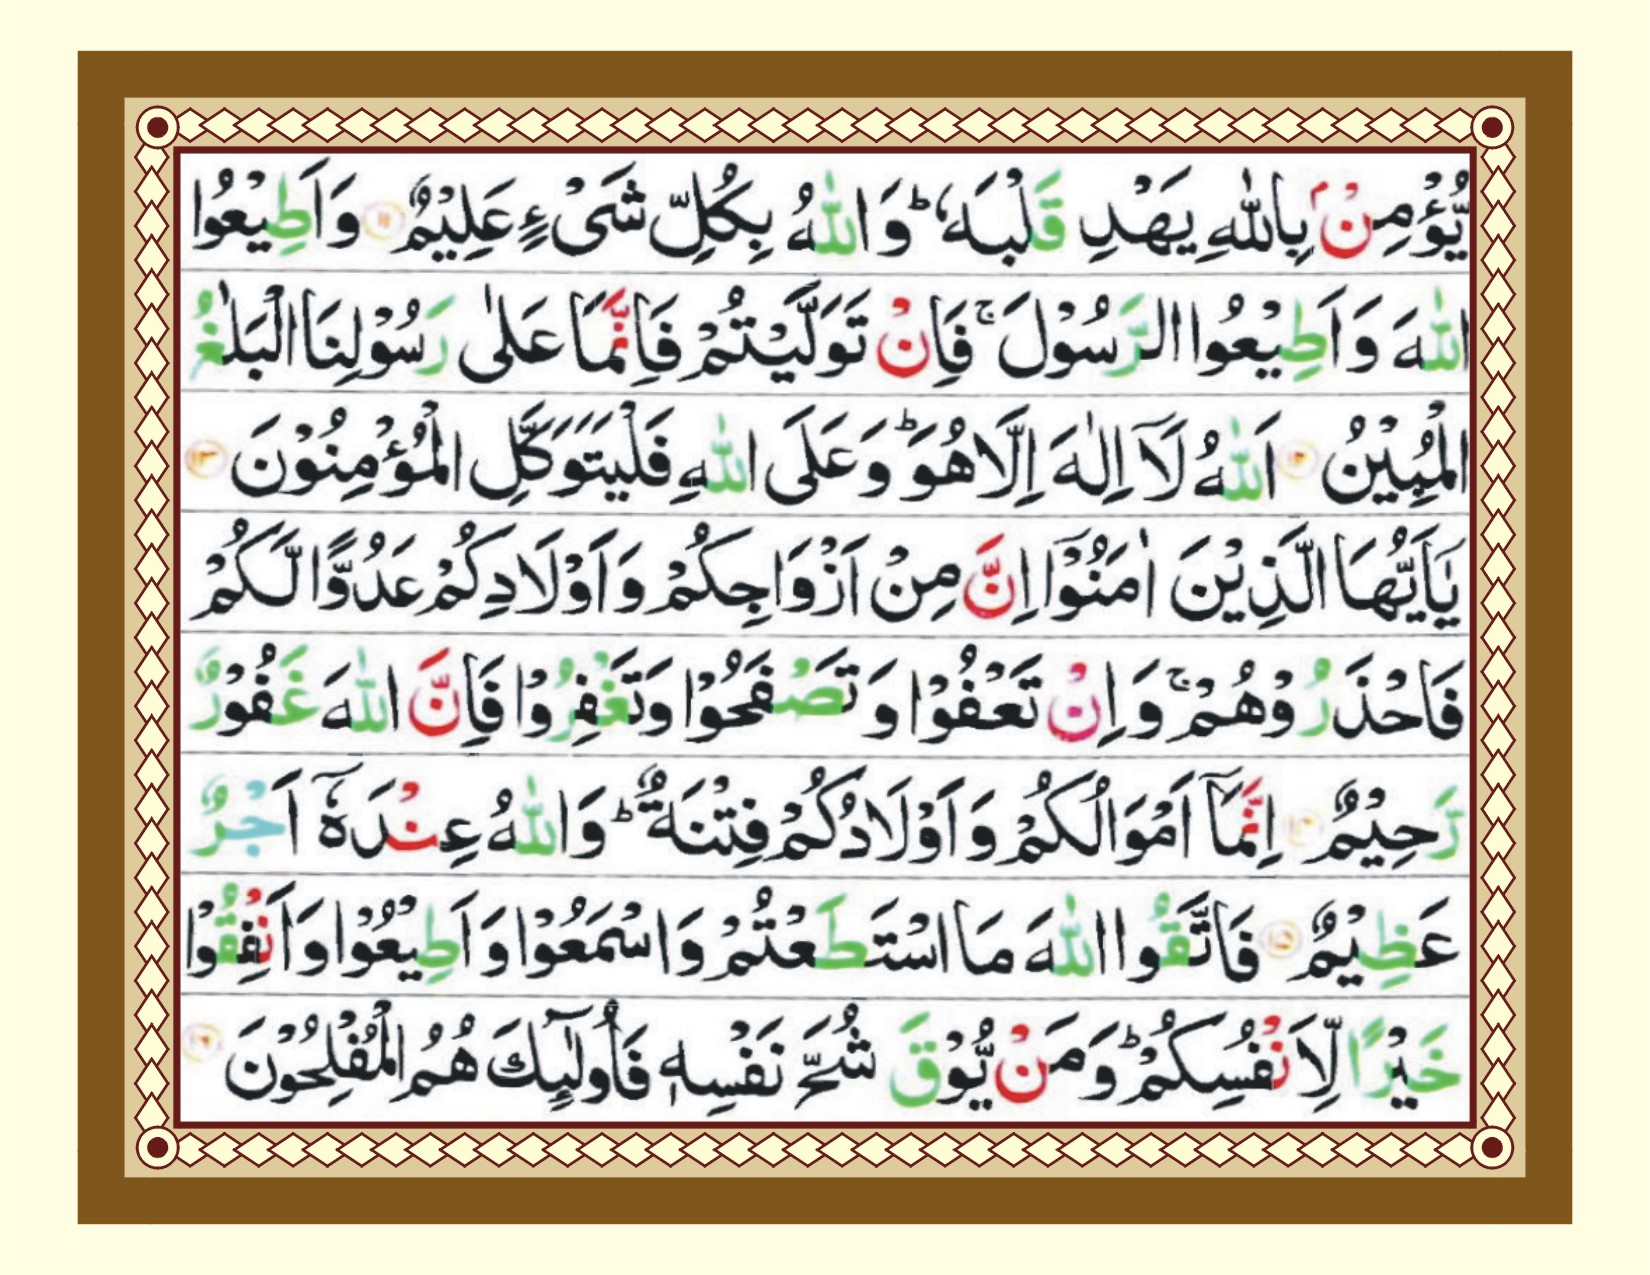 يُّؤْمِنْۢ بِاللّٰهِ يَهْدِ قَلْبَهٗ ؕ وَ اللّٰهُ بِكُلِّ شَیْءٍ عَلِیْمٌ ۝۱۱ وَ اَطِیْعُوا
اللّٰهَ وَ اَطِیْعُوا الرَّسُوْلَ ۚ فَاِنْ تَوَلَّیْتُمْ فَاِنَّمَا عَلٰی رَسُوْلِنَا الْبَلٰغُ
الْمُبِیْنُ ۝۱۲ اَللّٰهُ لَاۤ اِلٰهَ اِلَّا هُوَ ؕ وَ عَلَی اللّٰهِ فَلْیَتَوَكَّلِ الْمُؤْمِنُوْنَ ۝۱۳
یٰۤاَیُّهَا الَّذِیْنَ اٰمَنُوْۤا اِنَّ مِنْ اَزْوَاجِكُمْ وَ اَوْلَادِكُمْ عَدُوًّا لَّكُمْ
فَاحْذَرُوْهُمْ ۚ وَ اِنْ تَعْفُوْا وَ تَصْفَحُوْا وَ تَغْفِرُوْا فَاِنَّ اللّٰهَ غَفُوْرٌ
رَّحِیْمٌ ۝۱۴ اِنَّمَاۤ اَمْوَالُكُمْ وَ اَوْلَادُكُمْ فِتْنَةٌ ؕ وَ اللّٰهُ عِنْدَهٗۤ اَجْرٌ
عَظِیْمٌ ۝۱۵ فَاتَّقُوا اللّٰهَ مَا اسْتَطَعْتُمْ وَ اسْمَعُوْا وَ اَطِیْعُوْا وَ اَنْفِقُوْا
خَیْرًا لِّاَنْفُسِكُمْ ؕ وَ مَنْ یُّوْقَ شُحَّ نَفْسِهٖ فَاُولٰٓىِٕكَ هُمُ الْمُفْلِحُوْنَ ۝۱۶